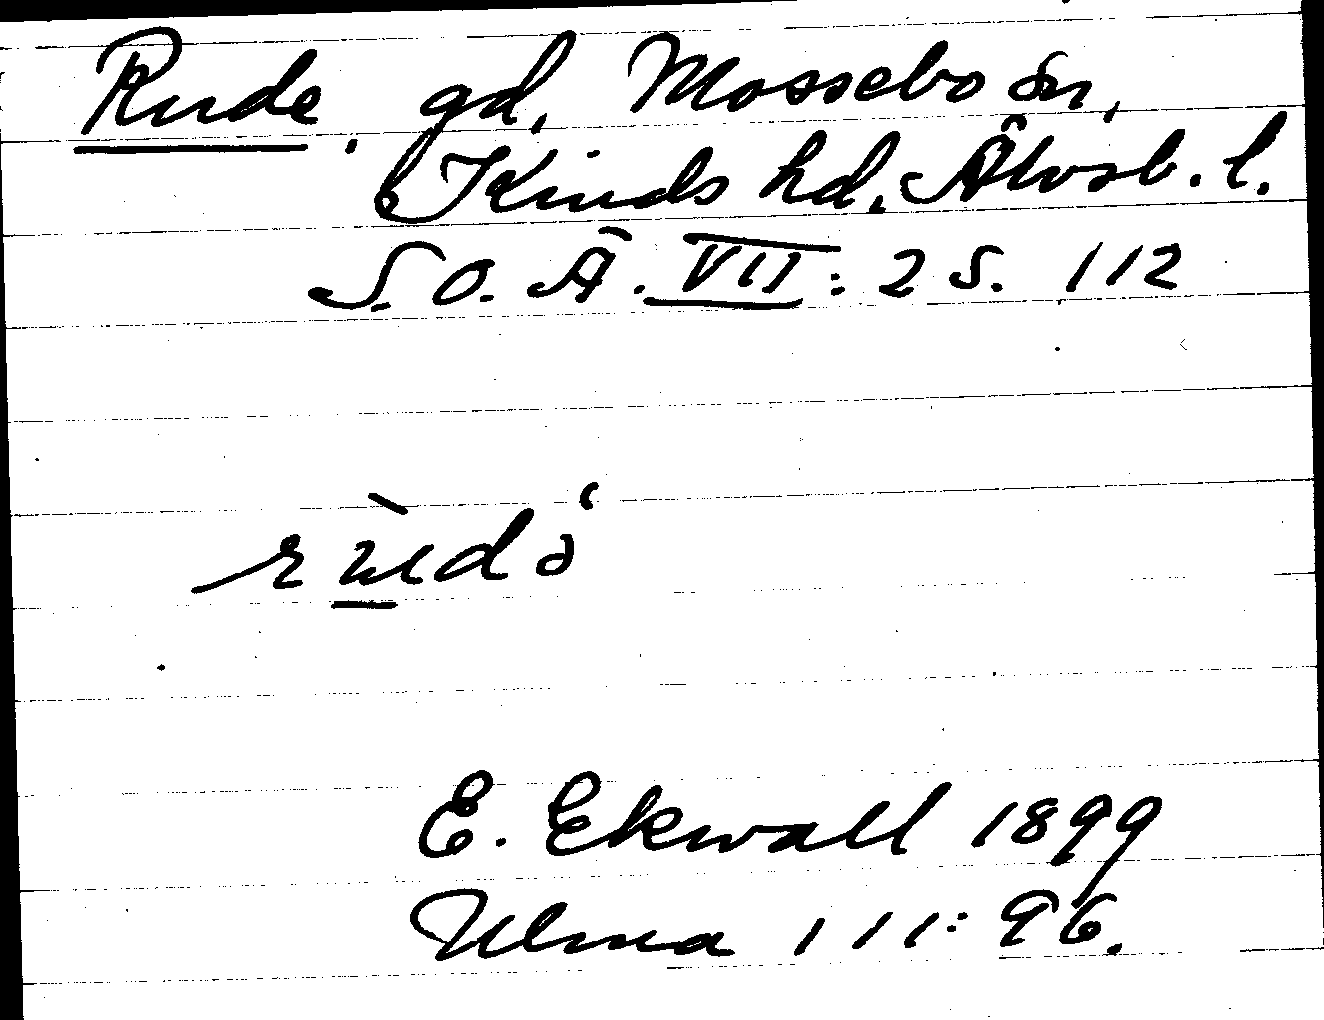 Rude. gd, Mossebo sn,
Kinds hd, Älvsb. l.
S. O. Ä. VII: 2 S. 112
E. Ekwall 1899
Ulma 111: 96.